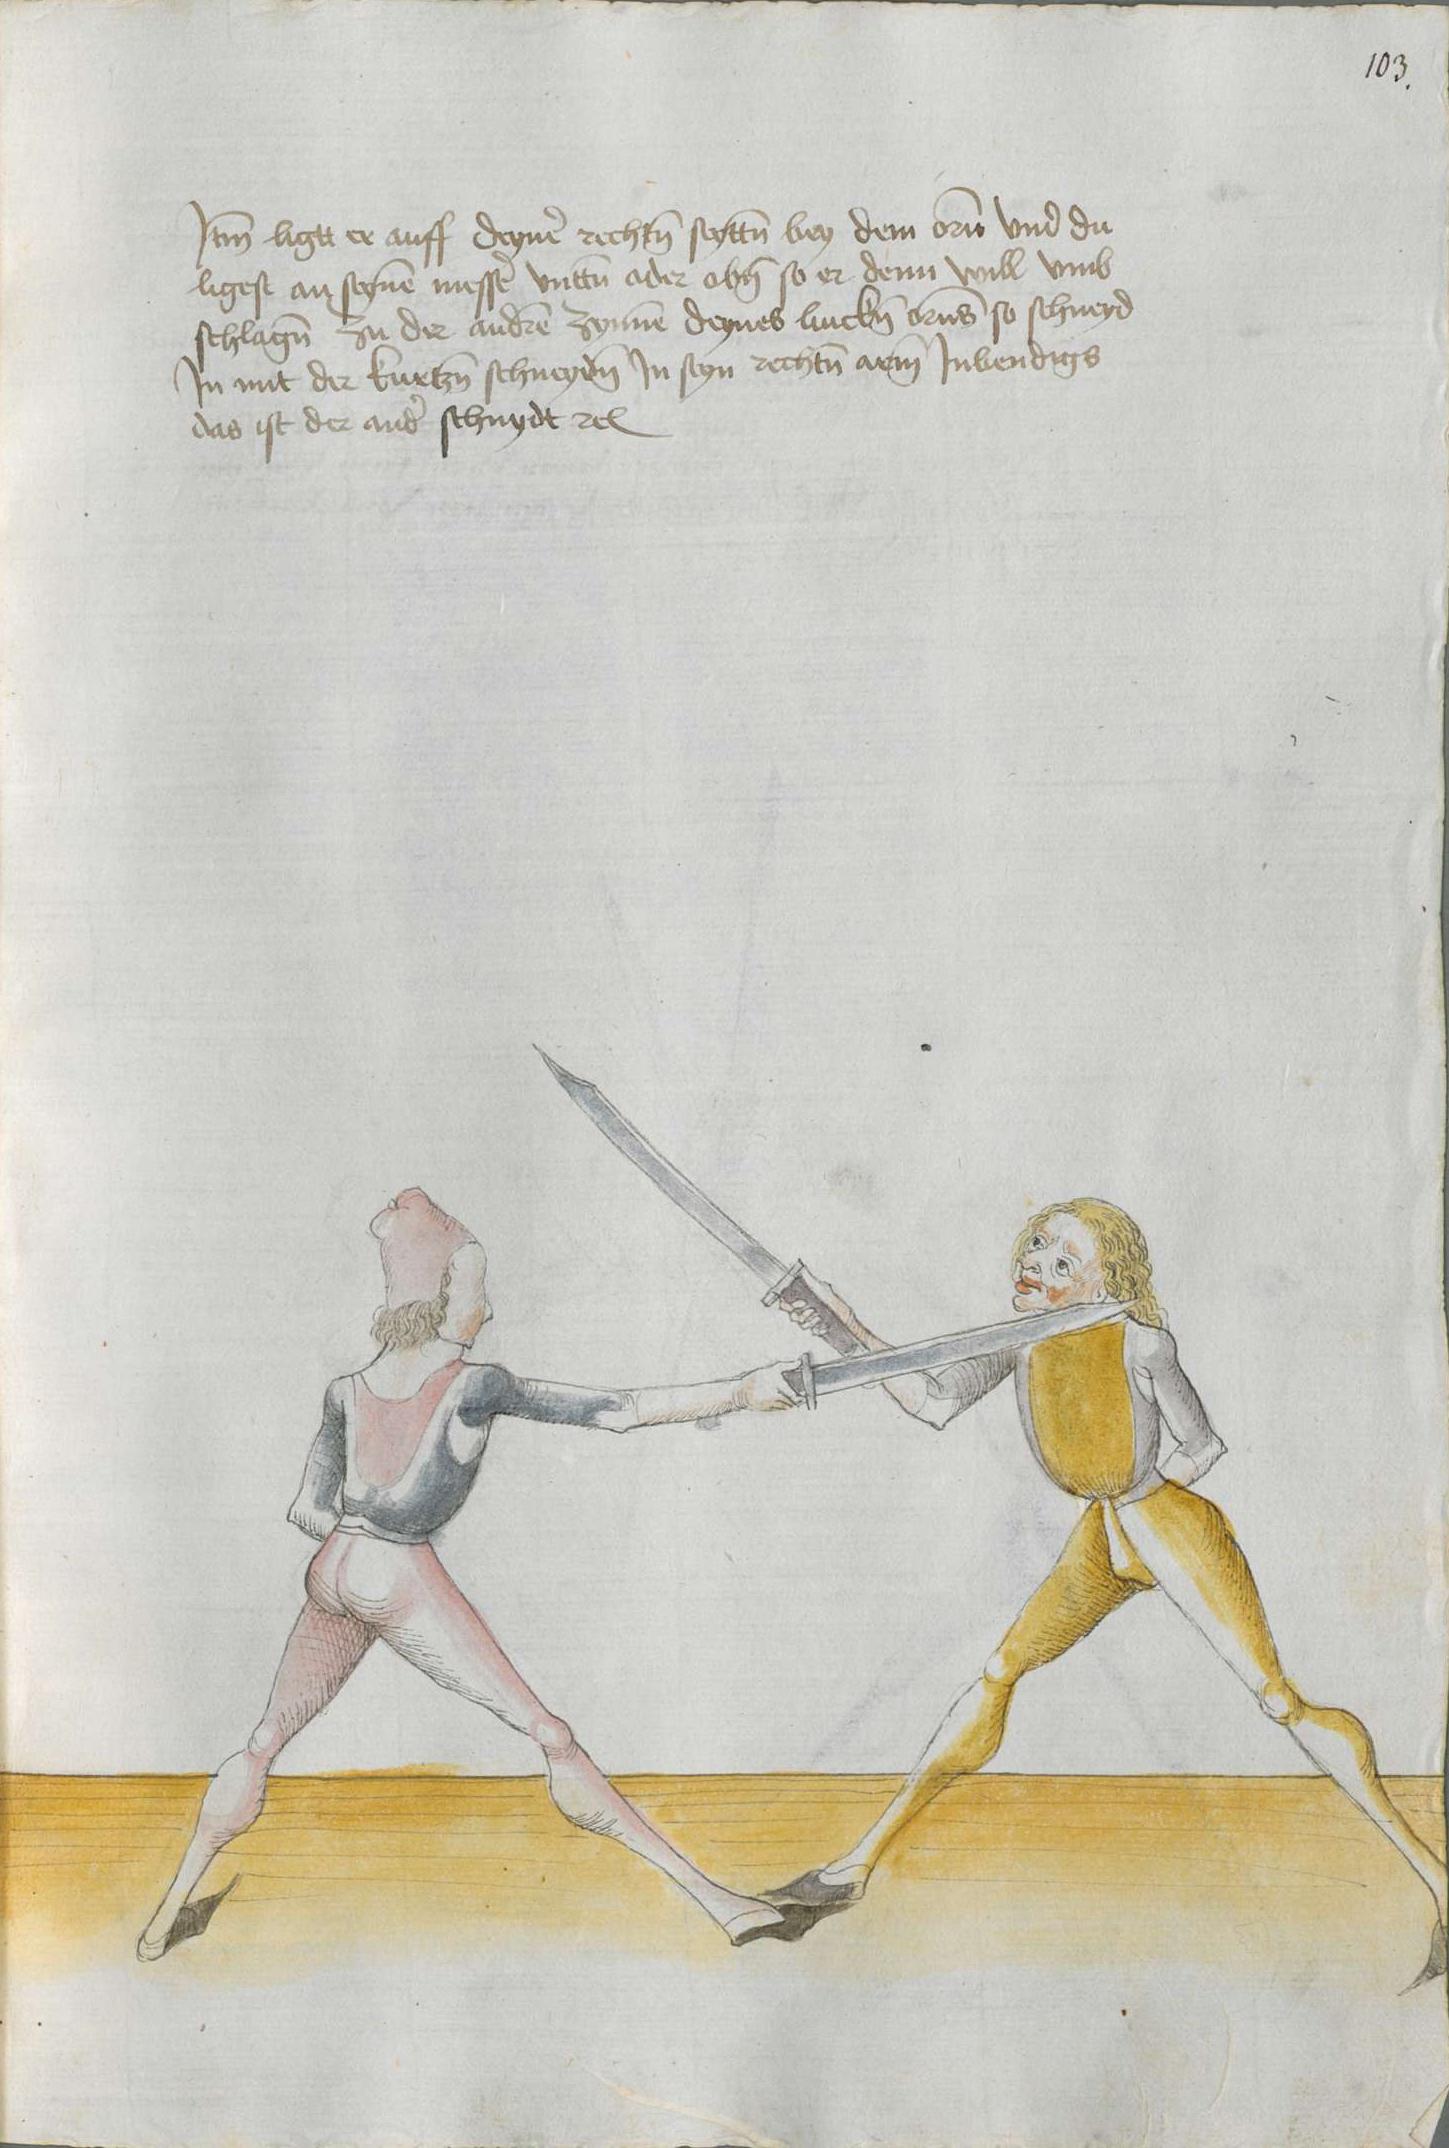 103.
Itm̄ ligtt er auff deyne͛ rechtn̄ seyttn̄ bey dem orn̄ vnd͛ du
ligest an seynē messe͛ vnttn̄ ader obn̄ so er denn will vmb
schlagn̄ zu der andrē zynnē deynes linckn̄ orns̄ so schneyd
In mit der kurtzn̄ schneydn̄ In seyn rechtn̄ arm̄ Inbendigs
das ist der and͛ schnydt rc